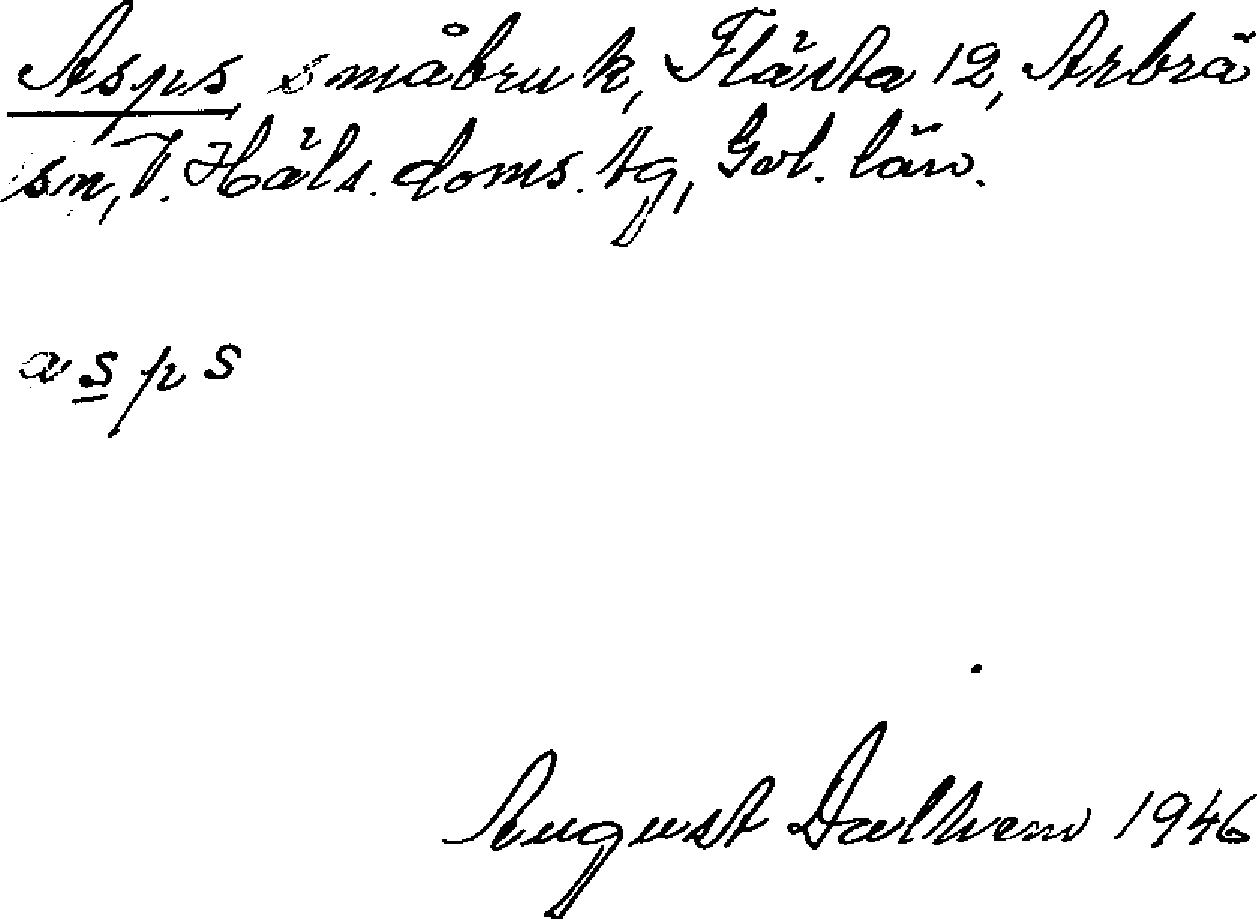 Asps småbruk, Flästa 12, Arbrå
sn, V. Häls. doms. tg, Gvl. län.
a s p s
August Dalhem 1946